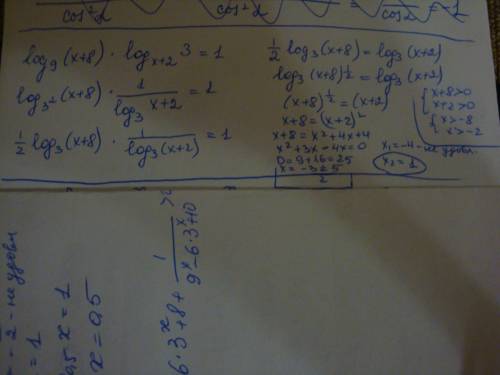 cos²2 cos²2 = cos2 = 1
log₉(x+8) · log_{x+2} 3 = 1
log_{3²}(x+8) · 1/log₃ x+2 = 1
½ log₃(x+8) · 1/log₃(x+2) = 1
½ log₃(x+8) = log₃(x+2)
log₃(x+8)^½ = log₃(x+2)
(x+8)^½ = (x+2)
x+8 = (x+2)²
x+8 = x²+4x+4
x²+3x-4x=0
D=9+16=25
x = -3±5
2
{x+8>0
x+2>0
{x>-8
x>-2
x₁=-4 - не удовл
x₂=1
- 2 - не удовл
= 1
0,5 x = 1
x = 0,5
6·3ˣ+8+ 1/9ˣ-6·3ˣ+10 >2